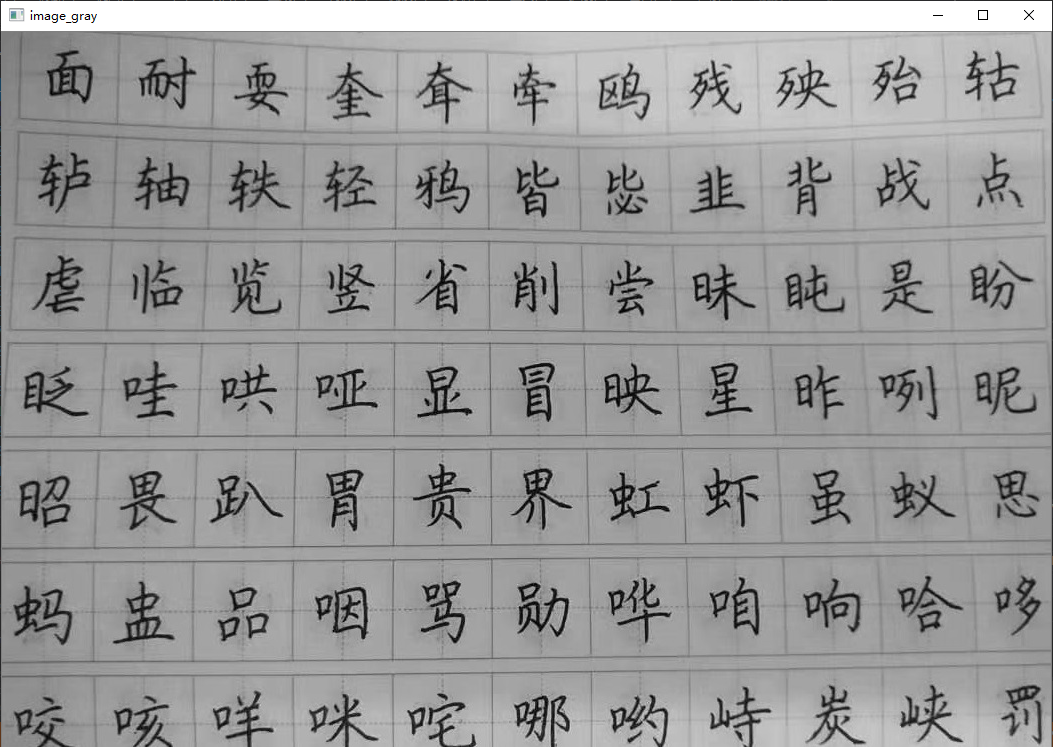 image_gray
面耐耍奎耷牵鸥残殃殆轱
轳轴轶轻鸦皆毖韭背战点
虐临览竖省削尝昧盹是盼
眨哇哄哑显冒映星昨咧昵
昭畏趴胃贵界虹虾虽蚁思
蚂盅品咽骂勋哗咱响哈哆
咬咳咩咪咤哪哟峙炭峡罚